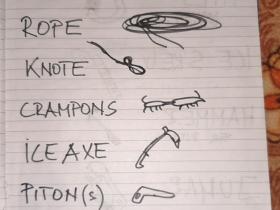 ROPE
KNOTE
CRAMPONS
ICE AXE
PITON(s)